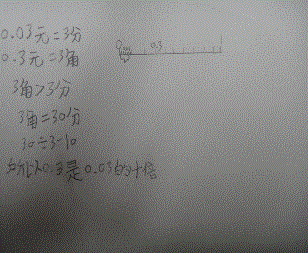 0.03元=3分
0.3
0.3元=3角
3角>3分
3角=30分
30÷3=10
所以0.3是0.03的十倍